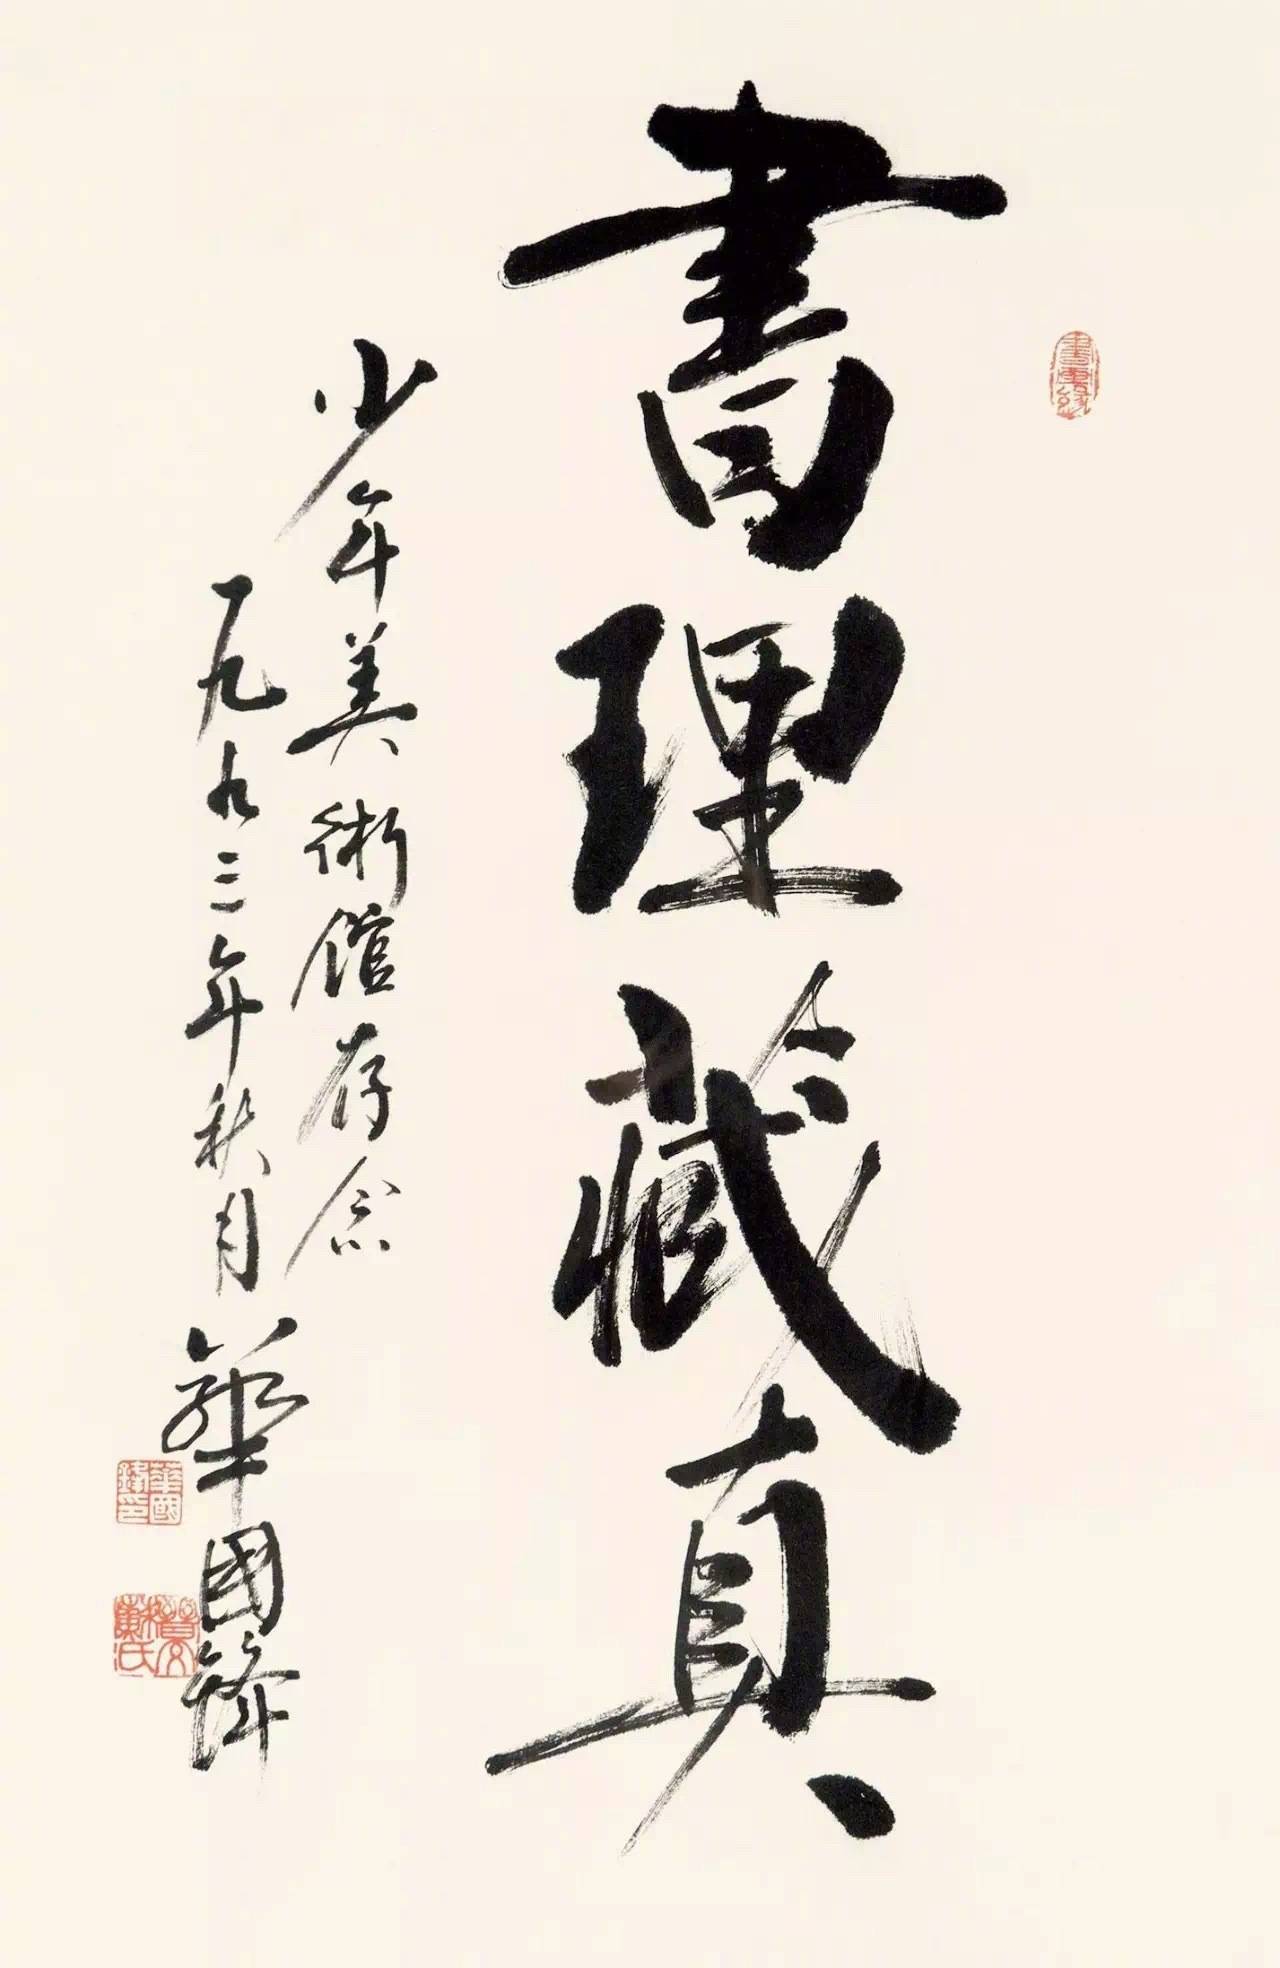 書理藏真
少年美術館存念
一九九三年秋月
華國鋒
華國鋒印